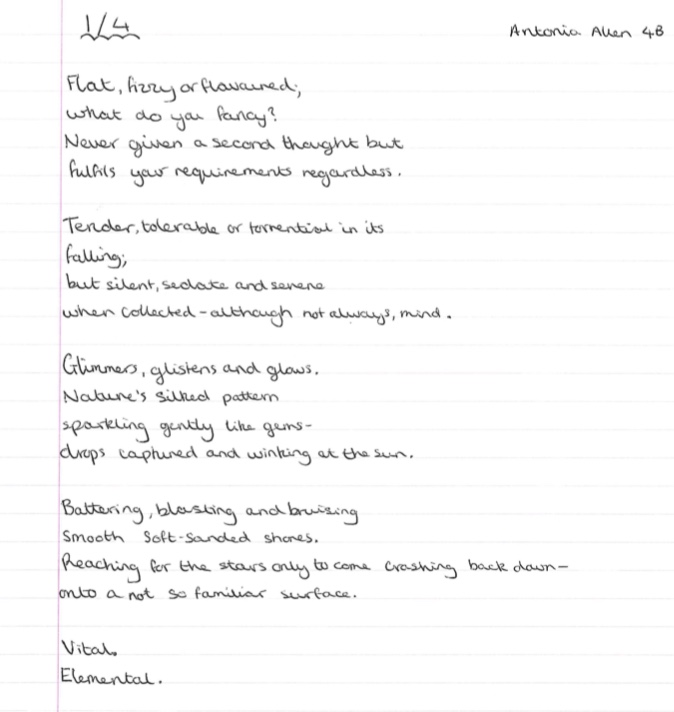 1/4
Antonia Allen 4B
Flat, fizzy or flavoured;
what do you fancy?
Never given a second thought but
fulfils your requirements regardless.
Tender, tolerable or torrential in its
falling;
but silent, sedate and serene
when collected - although not always, mind.
Glimmers, glistens and glows.
Nature's silked pattern
sparkling gently like gems-
drops captured and winking at the sun.
Battering, blasting and bruising
Smooth soft-sanded shores.
Reaching for the stars only to come crashing back down-
onto a not so familiar surface.
Vital.
Elemental.